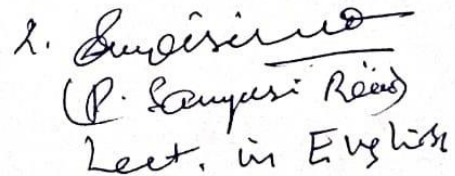 2.
(P. Sanyasi Rao)
Lect. in English